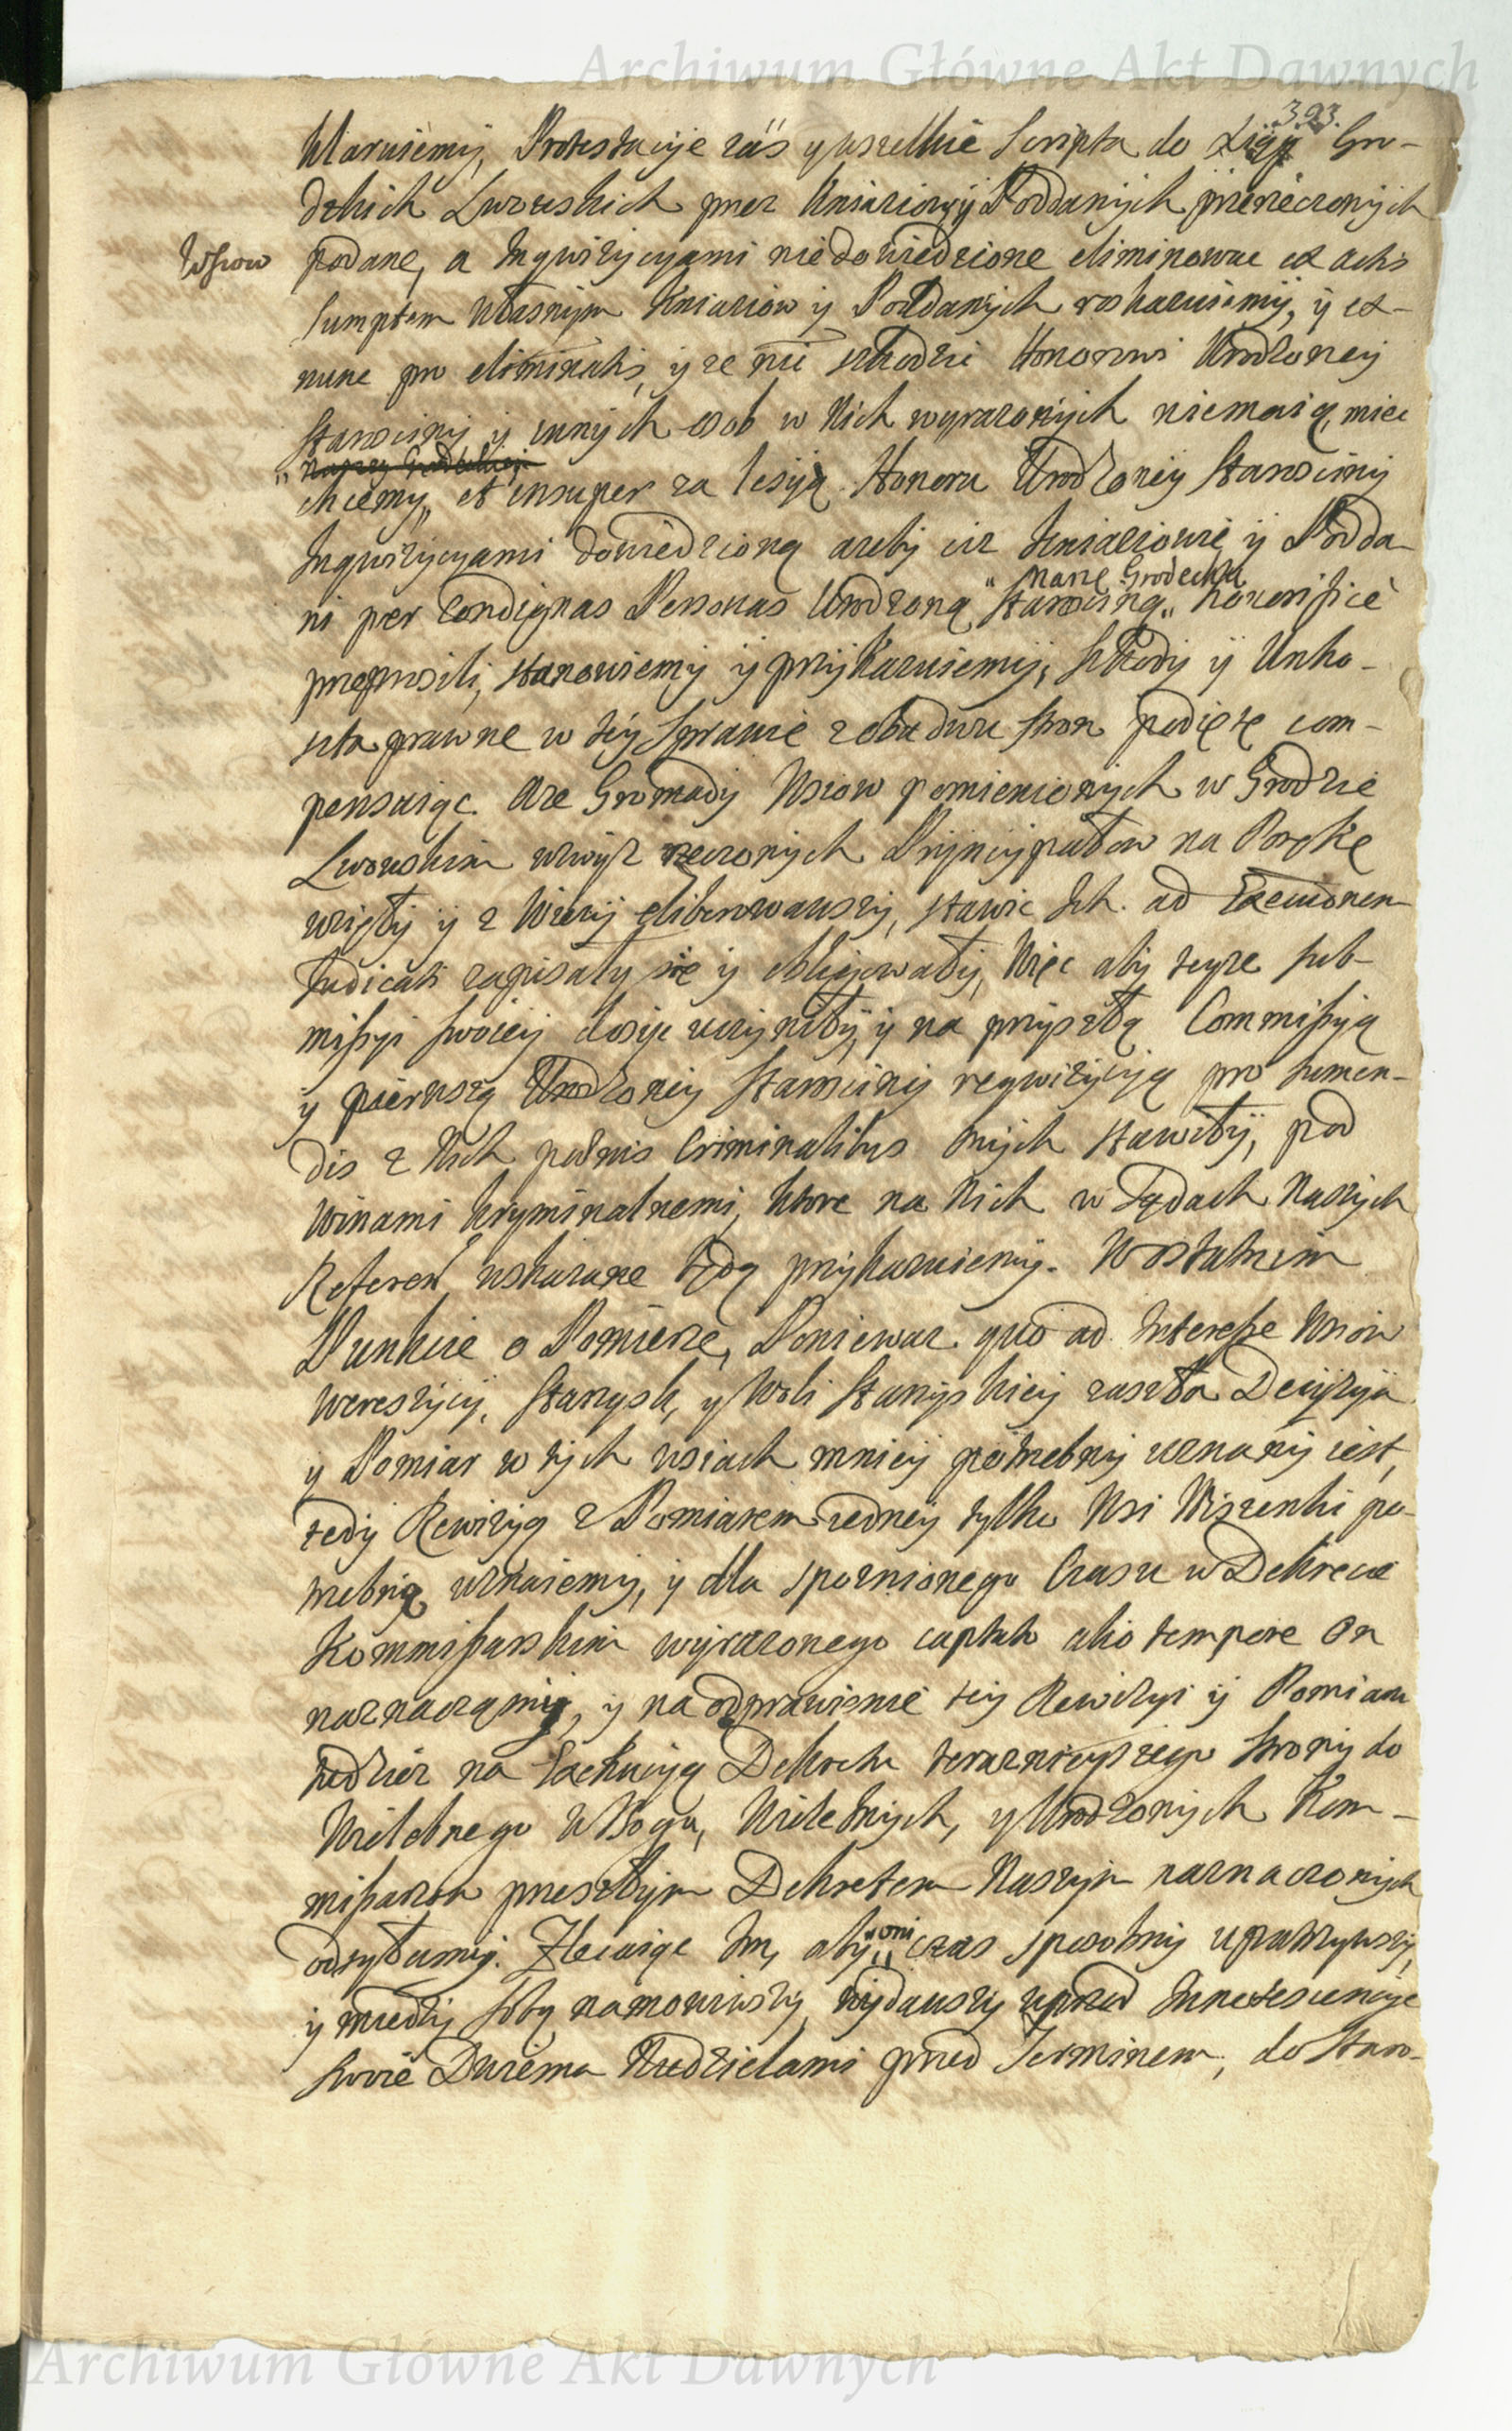 Archiwum Główne Akt Dawnych
393.
Waruiemy, Protestacye záś y wszelkie Scripta do Xięg Gro-
dzkich Lwowskich przez Kniaziow y Poddanych przerzeczonych
Wsiow
podane, a Inqwizycyami niedowiedzione eliminować ex actis
sumptem własnym Kniaziow y Poddanych roskazuiemy, y ex-
nunc pro eliminatis, y że nic szkodzić Honorowi Urodzoney
Starosciny y innych osob w Nich wyrażonych niemaią, mieć
chcemy, et insuper za lesyą Honoru Urodzoney Starosciny
Inqwizycyami dowiedzioną ażeby ciż Kniaziowie y Podda-
ni per Condignas Personas Urodzoną Starościnę honorificè
Nasze Grodecką
przeprosili, stanowiemy y przykazuiemy, Szkody y Unko-
szta prawne w tey Sprawie z obudwu stron podięte com-
pensuiąc. Aże Gromady Wsiow pomienionych w Grodzie
Lwowskim wzwyż rzeczonych Prynycypałow na Porękę
wzięły y z Wieży eliberowawszy, stawić Ich ad Executionem
Iudicati zapisały się y obligowały, Więc aby teyże sub-
missyi swoiey dosyć uczyniły, y na przyszłą Commissyą
y pierwszą Urodzoney Starosciny reqwizycyą pro sumen-
dis z Nich pœnis Criminalibus onych stawiły, pod
winami kryminalnemi, ktore na Nich w Sądach Naszych
Referen wskazane będą przykazuiemy. W ostatnim
Punkcie o Pomierze, Poniewaz quo ad Interesse Wsiow
Wereszycy, Stanysk, y Woli Stanyskiey zaszła Decyzyja
y Pomiar w tych wsiach mniey potrzebny uznany iest,
tedy Rewizyą z Pomiarem iedney tylko Wsi Wiszenki po-
trzebną uznaiemy, y dla spoznionego Czasu w Dekrecie
Kommissarskim wyrazonego captato alio tempore On
naznaczamy, y na odprawienie tey Rewizyi y Pomiaru
tudziez na Exekucyą Dekretu teraznieyszego Strony do
Wielebnego w Bogu, Wielebnych, y Urodzonych Kom-
missarzow przeszłym Dekretem Naszym naznaczonych
odsyłamy. Zlecaiąc Im, aby oni czas sposobny upatrzywszy,
y miedzy sobą namowiwszy, wydawszy wprzod Innotescencye
swoie Dwiema Niedzielami przed Terminem, do Staro-
Archiwum Główne Akt Dawnych